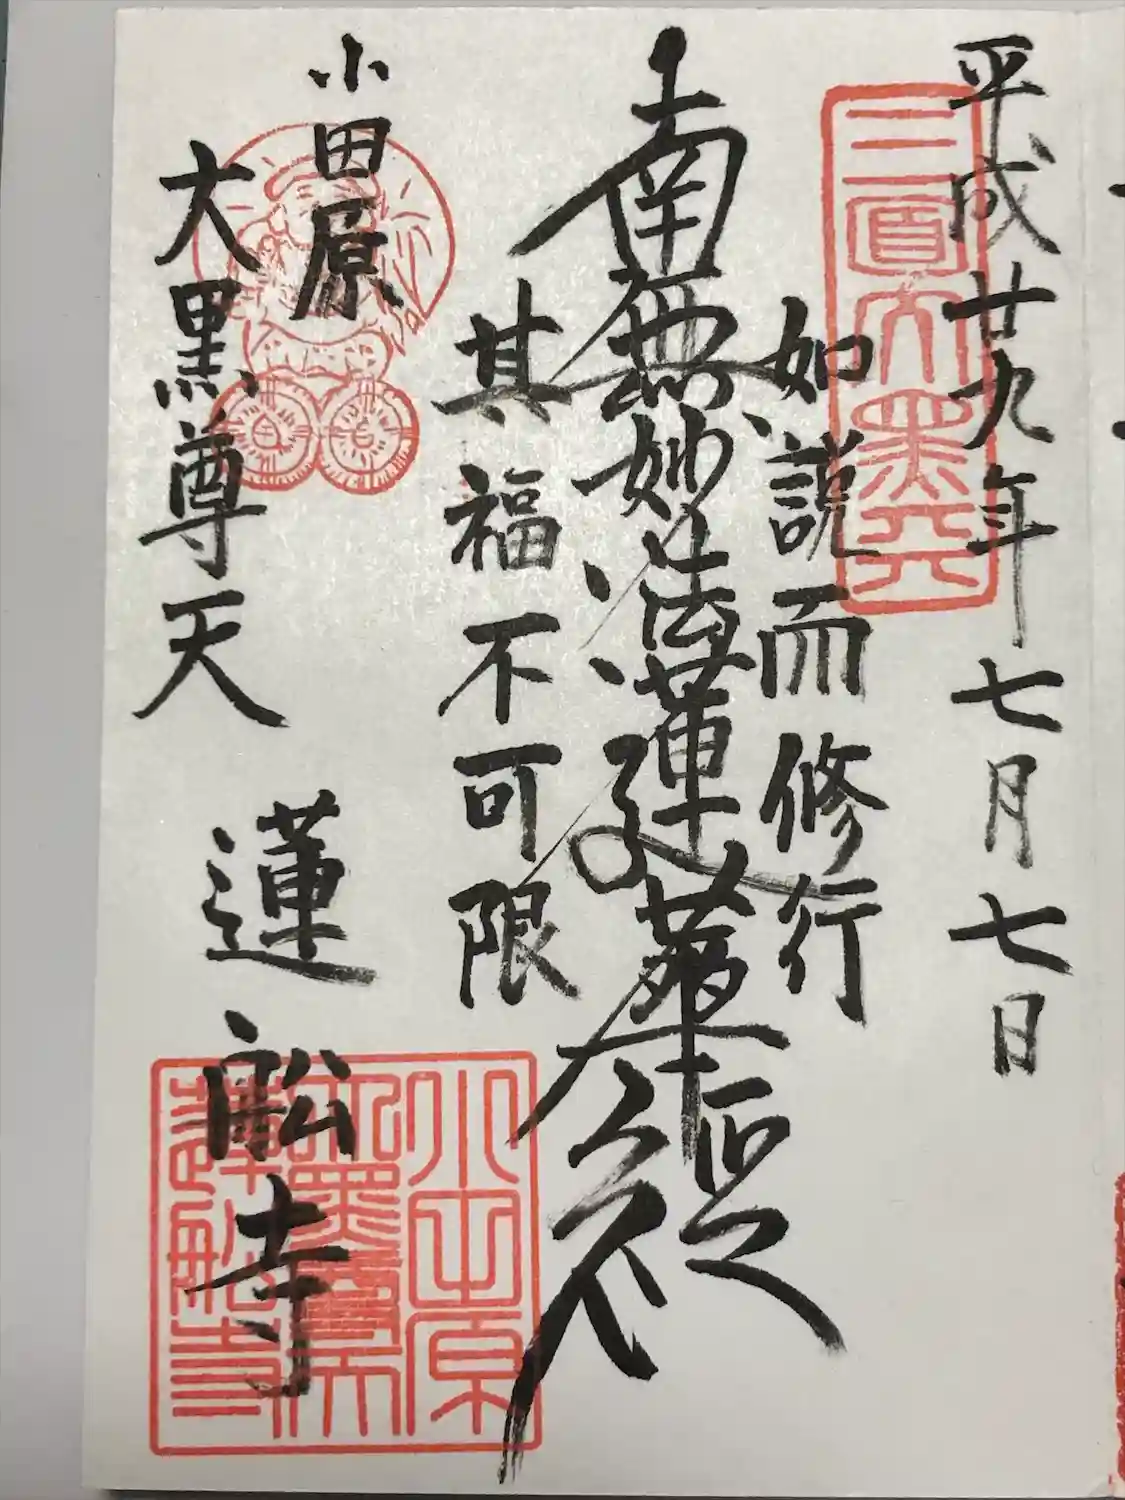 平成廿九年七月七日
如説而修行
南無妙法蓮華経
其福不可限
小田原
大黒尊天
蓮船寺
三面大黒天
小田原
大黒尊天
蓮船寺